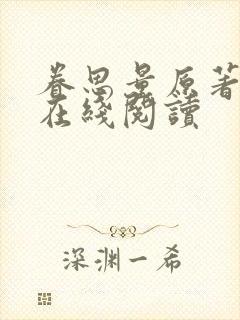 眷思量原著
在綫閱讀
深渊一希